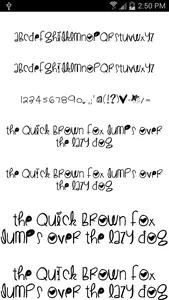 2:50 PM
abcdefghijklmnopqrstuvwxyz
abcdefghijklmnopqrstuvwxyz
1234567890.,:;'"(!?)
the quick brown fox jumps over
the lazy dog
the quick brown fox jumps over
the lazy dog
the quick brown fox
jumps over the lazy dog
the quick brown fox
jumps over the lazy dog